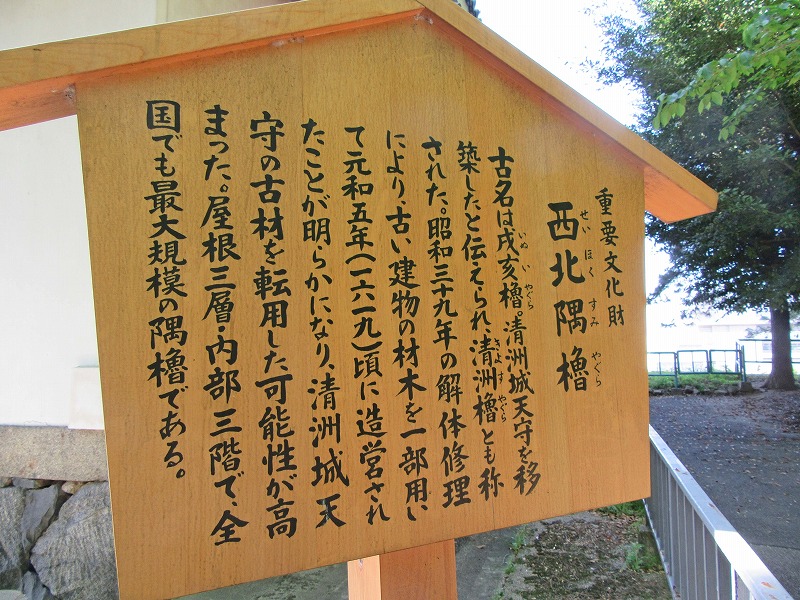 重要文化財
西北隅櫓
せい ほく すみ やぐら
古名は戌亥櫓。清洲城天守を移
いぬ い やぐら
築したと伝えられ、清洲櫓とも称
きよ す やぐら
された。昭和三十九年の解体修理
により、古い建物の材木を一部用い
て元和五年(一六一九)頃に造営され
たことが明らかになり、清洲城天
守の古材を転用した可能性が高
まった。屋根三層・内部三階で、全
国でも最大規模の隅櫓である。